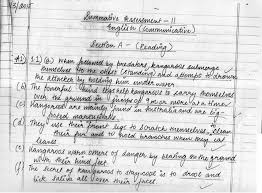 Summative Assessment - II
English (Communicative)
Section A - (Reading)
A1) 1.1) (a) When followed by predators, kangaroos submerge
themselves to the and attempts to drown
the attacker by holding him under water.
(b) The powerful hind legs help kangaroos to carry themselves
over the ground in jumps of 9m or more at a time.
(c) Kangaroos are mainly found in Australia and are big-
footed marsupials.
(d) They use their front legs to scratch themselves, clean
their fur and to hold branches when they eat
leaves.
(e) Kangaroos warn others of danger by beating on the ground
with their hind feet.
(f) The secret of kangaroos to stay cool is to drool and
lick saliva all over their faces.